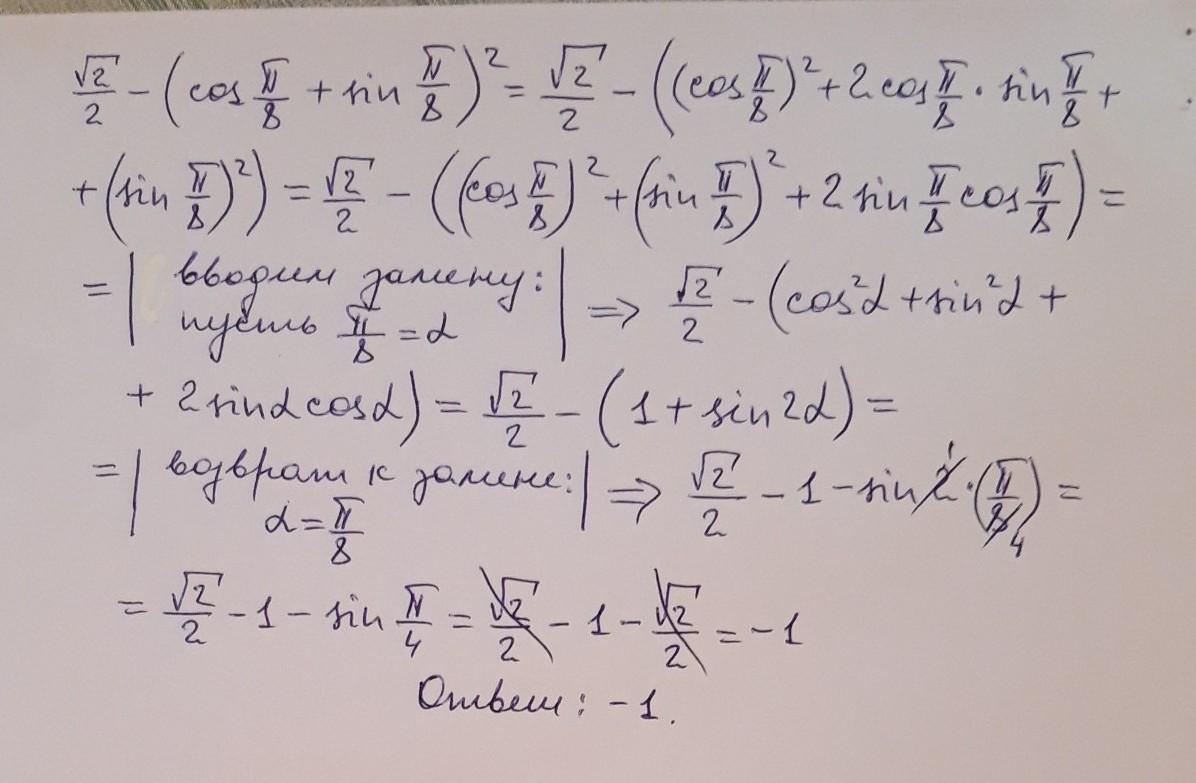 √2/2 − (cos π/8 + sin π/8)² = √2/2 − ((cos π/8)² + 2 cos π/8 · sin π/8 +
+ (sin π/8)²) = √2/2 − ((cos π/8)² + (sin π/8)² + 2 sin π/8 cos π/8) =
= | вводим замену: | ⇒ √2/2 − (cos²α + sin²α +
пусть π/8 = α
+ 2 sinα cosα) = √2/2 − (1 + sin 2α) =
= | возврат к замене: | ⇒ √2/2 − 1 − sin 2 1 · (π/8 4) =
α = π/8
= √2/2 − 1 − sin π/4 = √2/2 − 1 − √2/2 = −1
Ответ: −1.